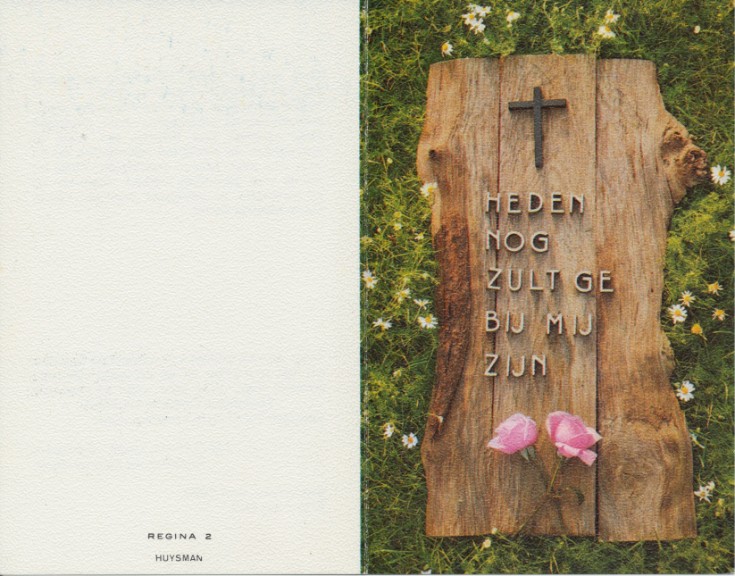 REGINA 2
HUYSMAN
HEDEN
NOG
ZULT GE
BIJ MIJ
ZIJN